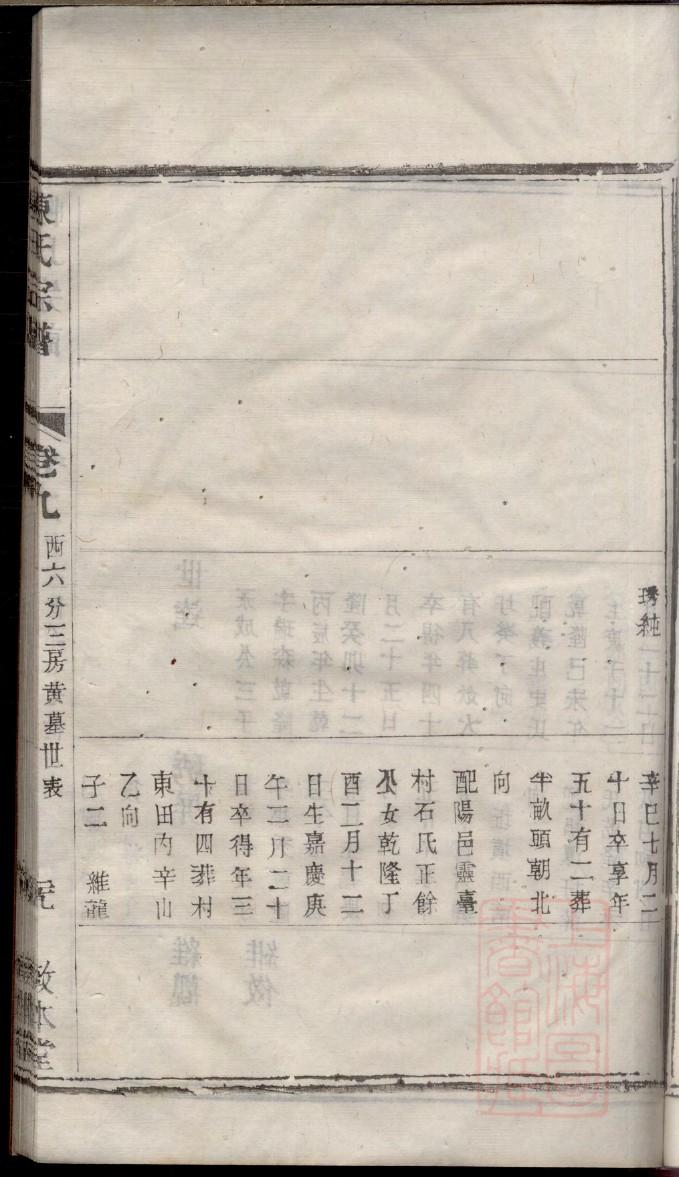 琇純
辛巳七月二
十日卒享年
五十有二葬
半畝頭朝北
向
配陽邑靈臺
村石氏正餘
公女乾隆丁
酉二月十二
日生嘉慶庚
午二月二十
日卒得年三
十有四葬村
東田内辛山
乙向
子二 維龍
陳氏宗譜
卷九
西六分三房黄墓世表
敦本堂
上海圖書館藏